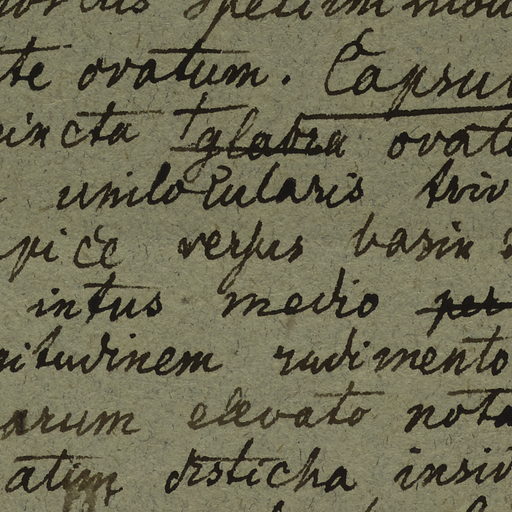 te ovatum. Capsu
cincta glabra ovat
unilocularis triv
pice versus basin
intus medio per
gitudinem rudimento
arum elevato nota
atim disticha insid